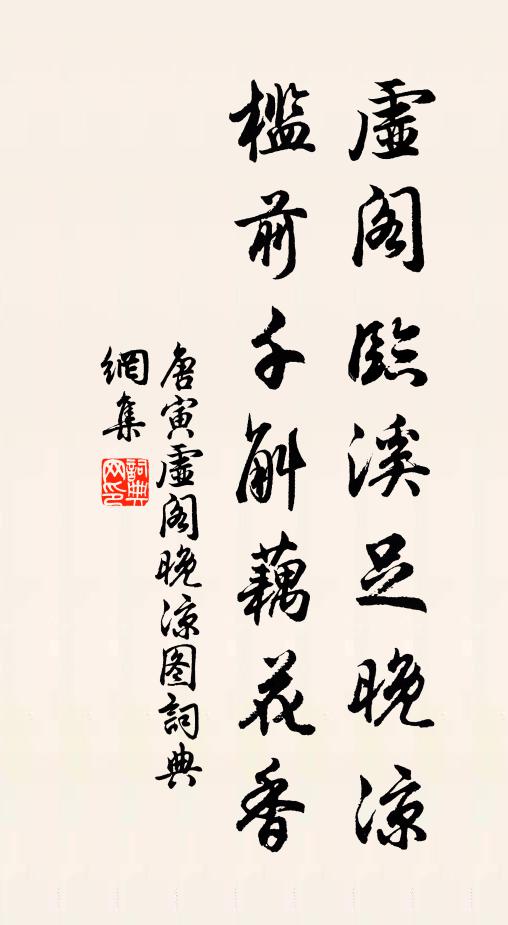 虛阁臨溪足晚涼
檻前千斛藕花香
唐寅虛阁晚涼图詞典
網集
詞典网印